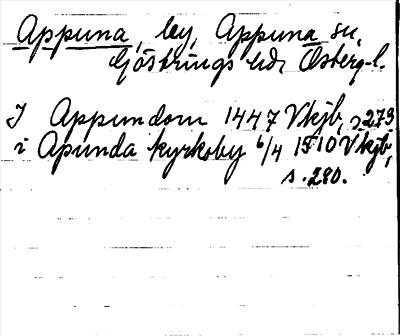 Appuna, by, Appuna sn,
Göstrings hd, Österg. l.
I Appundom 1447 Vkjb, s 273
i Apunda kyrkoby 6/4 1510 Vkjb,
s. 280.